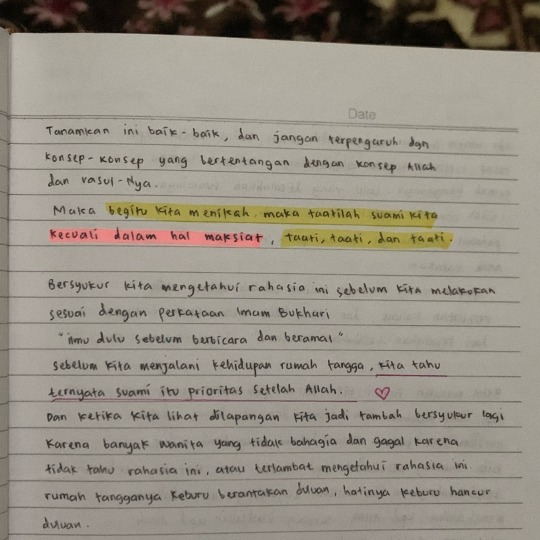 Date
Tanamkan ini baik-baik, dan jangan terpengaruh dgn
konsep-konsep yang bertentangan dengan konsep Allah
dan rasul-Nya.
Maka begitu kita menikah, maka taatilah suami kita
kecuali dalam hal maksiat, taati, taati, dan taati.
Bersyukur kita mengetahui rahasia ini sebelum kita melakukan
sesuai dengan perkataan Imam Bukhari
"ilmu dulu sebelum berbicara dan beramal"
sebelum kita menjalani kehidupan rumah tangga, kita tahu
ternyata suami itu prioritas setelah Allah.
Dan ketika kita lihat dilapangan kita jadi tambah bersyukur lagi
karena banyak wanita yang tidak bahagia dan gagal karena
tidak tahu rahasia ini, atau terlambat mengetahui rahasia ini
rumah tangganya keburu berantakan duluan, hatinya keburu hancur
duluan.